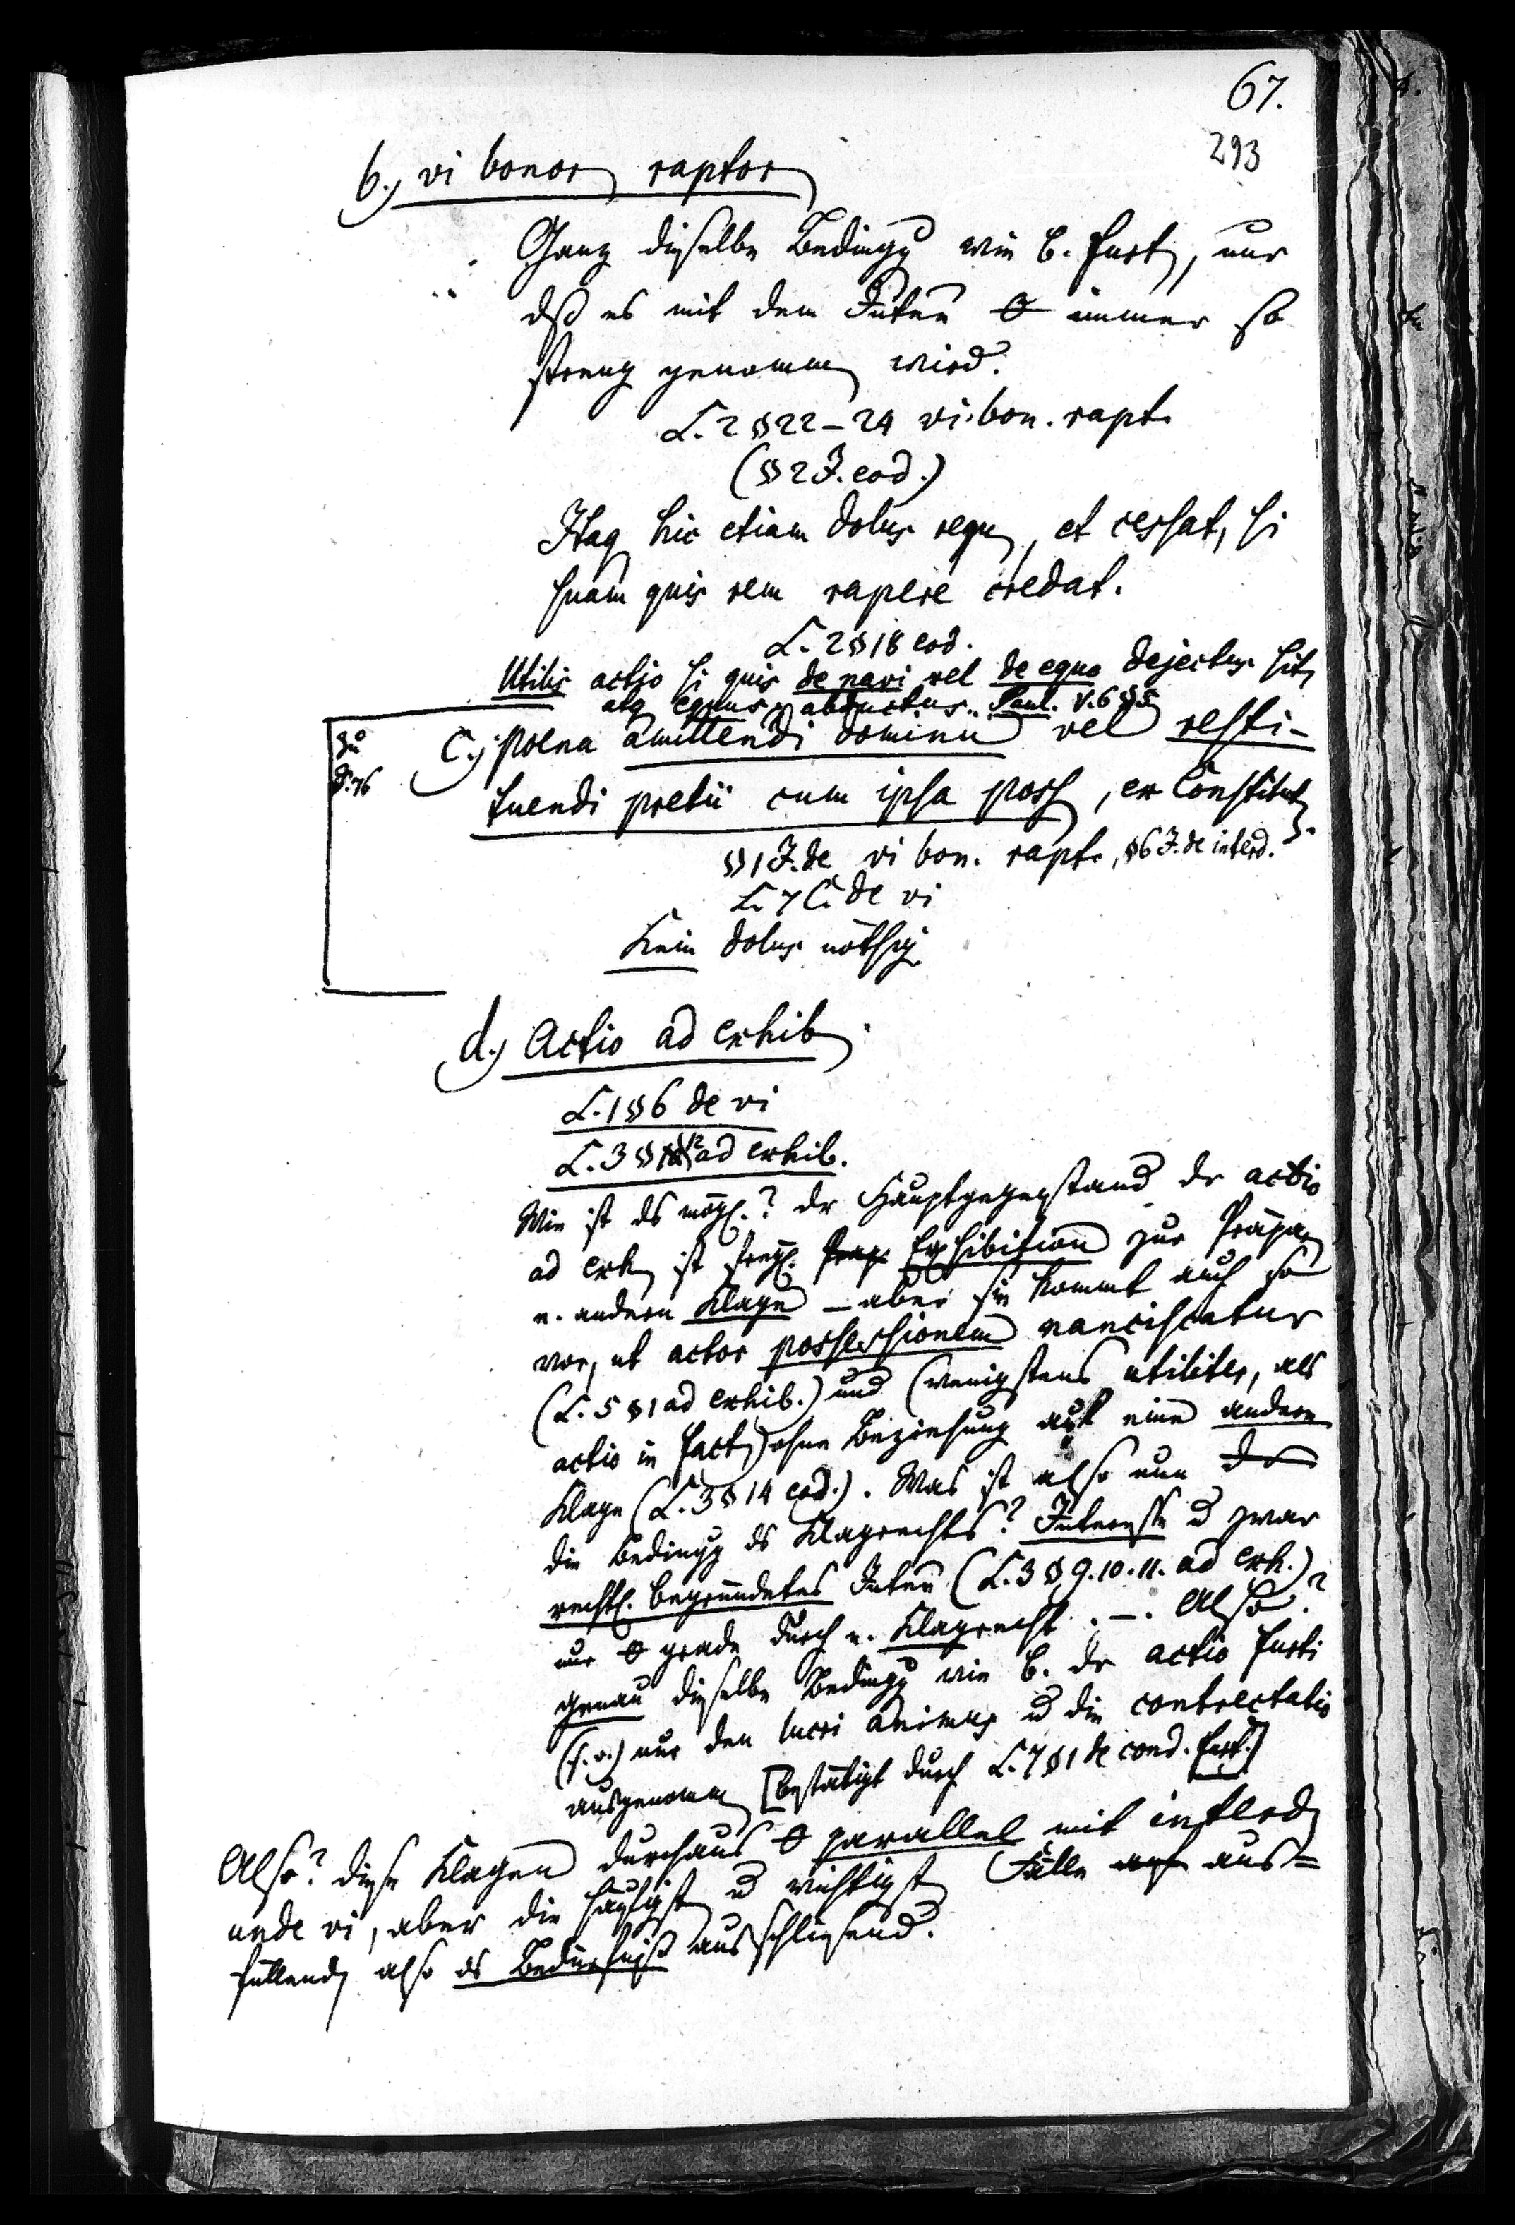 67.
293
b.) vi bonor raptor
Ganz dieselbe Bedingg wie b. furt, nur
dß es mit dem Inteη immer so
streng genomm wird.
L. 2 § 22–24 vi. bon. rapt.
(§ 2 J. eod.)
Itaq hic etiam dolus requ, et cessat, si
suam quis rem rapere credat.
L. 2 § 18 eod.
Utilis actio si quis de navi vel de equo dejectus sit,
atq equus abductus. Paul. V. 6 § 5
zu
c.) poena amittendi dominii vel resti-
tuendi pretii cum ipsa poss, ex Constitut.
§ 1 J. de vi bon. rapt., § 6 J. de interd.
L. 7 C. de vi
Kein dolus nöthig
d.) Actio ad exhib.
L. 1 § 6 de vi
L. 3 § 12 ad exhib.
Wie ist ds mögl.? dr Hauptgegenstand dr actio
ad exh ist Exhibition zur Präpa
e. andern Klage – aber sie kommt auch so
vor, ut actor possessionem nanciscatur
(L. 5 § 1 ad exhib.) und (wenigstens utiliter, als
actio in fact.) ohne Beziehung auf eine andere
Klage (L. 3 § 14 eod.). Was ist also nun
die Bedingg ds Klagrechts? Interesse u zwar
rechtl. begründetes Inter (L. 3 § 9. 10. 11. ad exh.)
nur grade durch e. Klagrecht. –. Also?
genau dieselbe Bedingg wie b. dr actio furti
(s. o.) nur den lucri animus u die contrectatio
ausgenomm [bestätigt durch L. 7 § 1 de cond. furt.]
Also? diese Klagen durchaus parallel mit interd
unde vi, aber die häufigst u wichtigst Fälle aus=
füllend, also ds Bedürfniß ausschliesend.